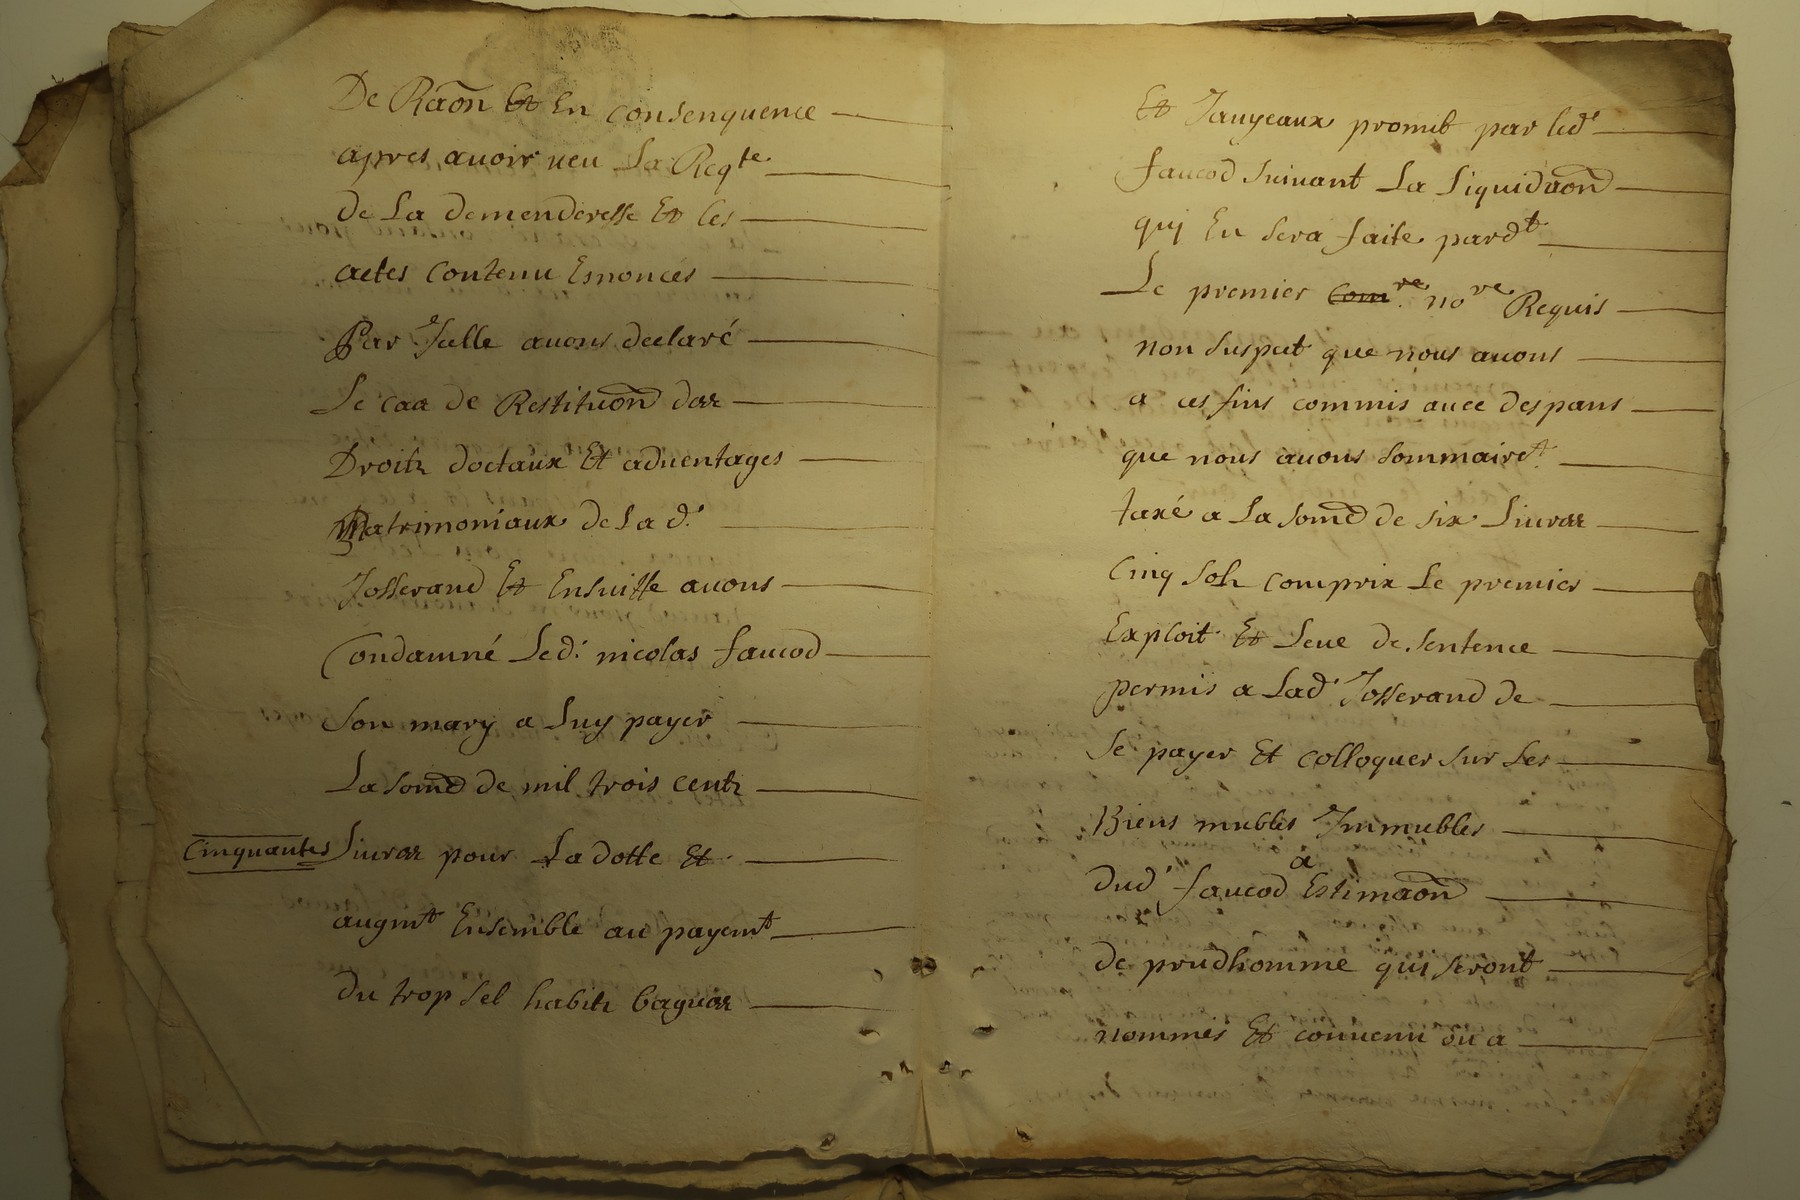 De Raõn Et En consenquence
apres avoir veu La Reqte
de La demenderesse Et les
actes contenu Enoncés
Par Jcelle avons declaré
Le cas de Restituõn des
Droits doctaux Et adventages
Matrimoniaux de La d.
Josserand Et Ensuitte avons
Condamné Led. nicolas faucod
son mary a Luy payer
La some de mil trois cents
Cinquantes Livres pour La dotte Et
augmt Ensemble au payemt
du tropsel habits bagues
Et Jauyeaux promit par led
faucod suivant La Liquidaõn
quy En sera faite pardt
Le premier ~~Com~~re nore Requis
non suspect que nous avons
a ces fins commis avec despans
que nous avons sommairet
taxé a La some de six Livres
Cinq sols compris Le premier
Exploit Et Leve de sentence
permis a Lad Josserand de
se payer Et colloquer sur Les
Biens mubles Jmmubles
dud faucod a Estimaõn
de prudhomme quy seront
nommés Et convenu ou a